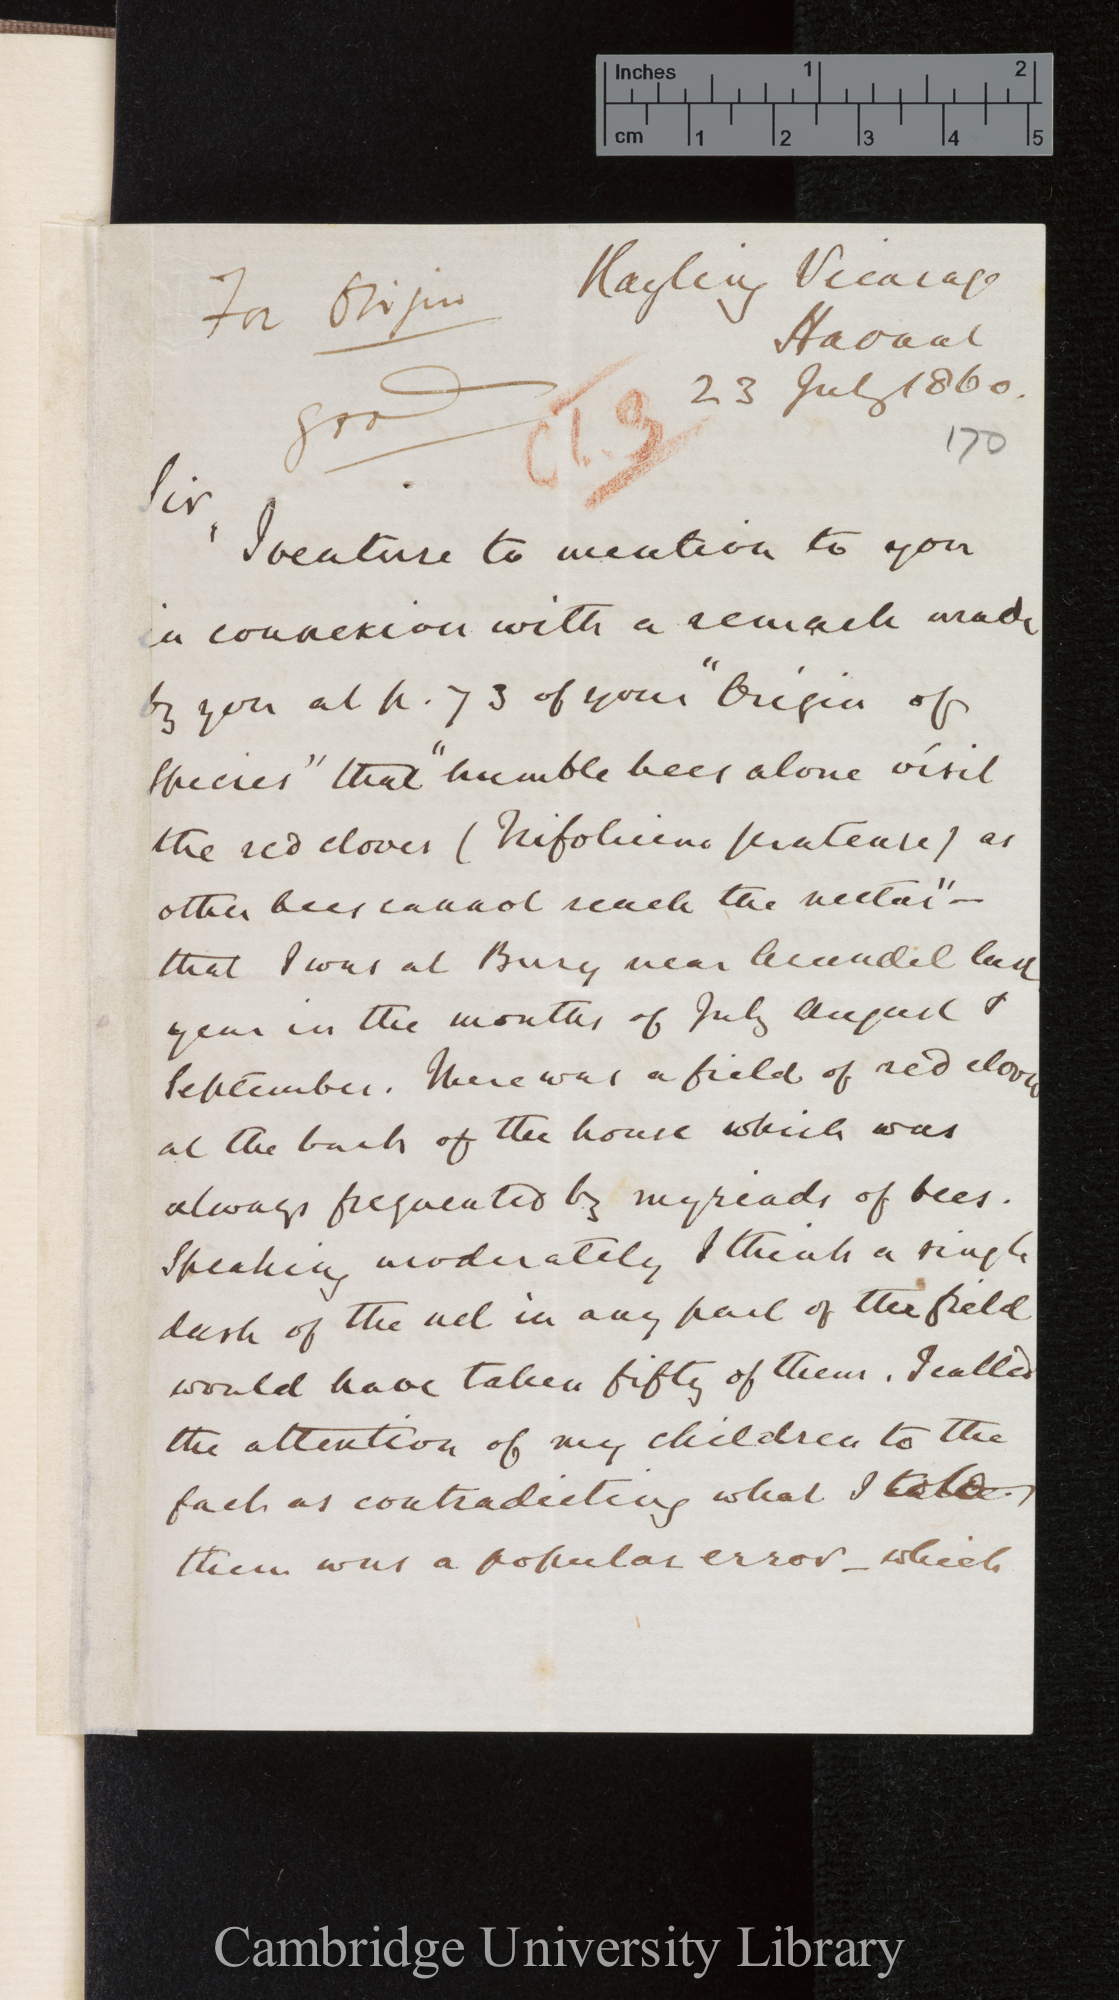 Inches 1 2
cm 1 2 3 4 5
For Origin
good
Ch. 3
Hayling Vicarage
Havant
23 July 1860.
170
Sir,
I venture to mention to you
in connexion with a remark made
by you at p. 73 of your "Origin of
Species" that "humble bees alone visit
the red clover (Trifolium pratense) as
other bees cannot reach the nectar" —
that I was at Bury near Arundel last
year in the months of July August &
September. There was a field of red clover
at the back of the house which was
always frequented by myriads of bees.
Speaking moderately I think a single
dash of the net in any part of the field
would have taken fifty of them. I called
the attention of my children to the
fact as contradicting what I told
them was a popular error — which
Cambridge University Library